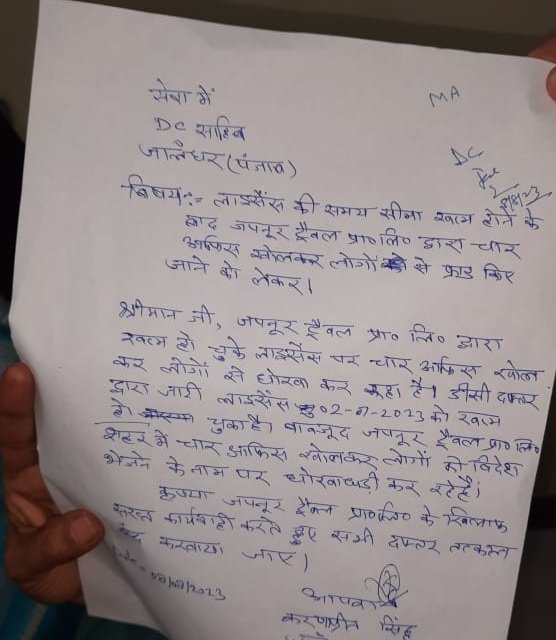 MA
सेवा में
DC साहिब
DC
जालंधर (पंजाब)
विषय:- लाइसैंस की समय सीमा खत्म होने के
बाद जपनूर ट्रैवल प्रा० लि० द्वारा चार
आफिस खोलकर लोगों से फ्राड किए
जाने को लेकर।
श्रीमान जी, जपनूर ट्रैवल प्रा० लि० द्वारा
खत्म हो चुके लाइसैंस पर चार आफिस खोल
कर लोगों से धोखा कर रहा है। डीसी दफ्तर
द्वारा जारी लाइसैंस 02-01-2023 को खत्म
हो चुका है। बावजूद जपनूर ट्रैवल प्रा० लि०
शहर में चार आफिस खोलकर लोगों को विदेश
भेजने के नाम पर धोखाधड़ी कर रहे हैं।
कृप्या जपनूर ट्रैवल प्रा० लि० के खिलाफ
कार्यवाही करते हुए सभी दफ्तर
करवाया जाए।
08/08/2023
आपका
सिंह